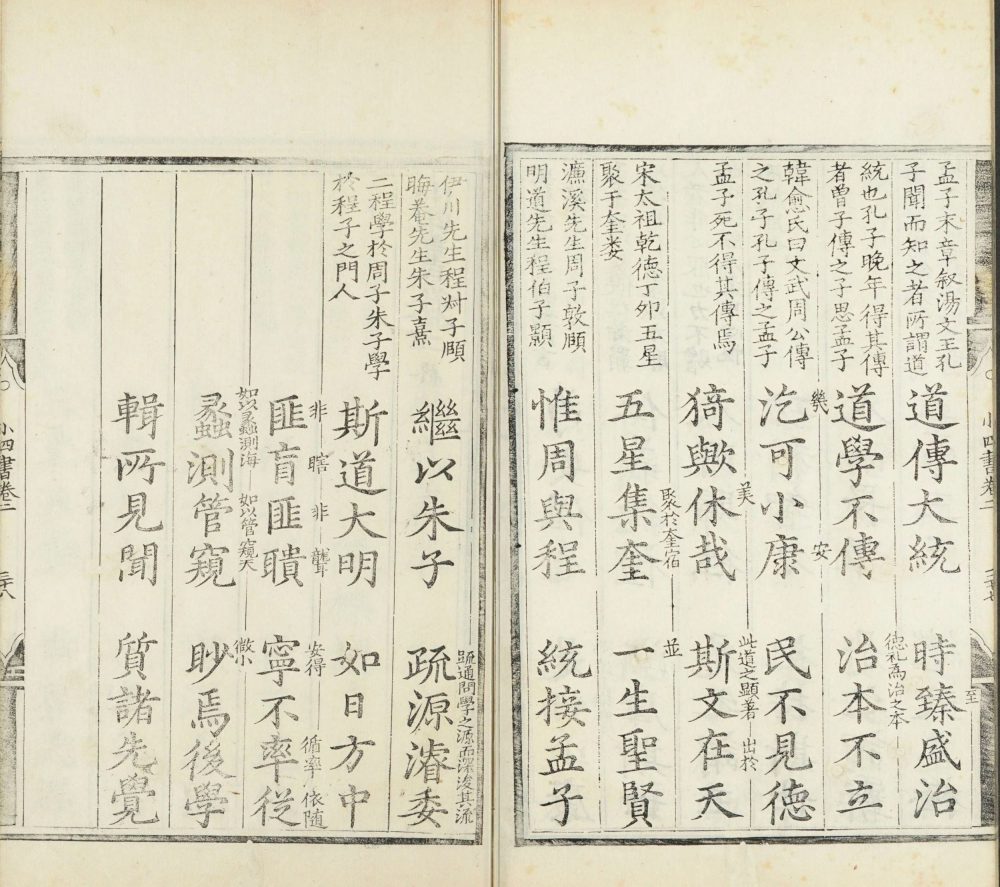 孟子末章叙湯文王孔
子聞而知之者所謂道
至
道傳大統　時臻盛治
統也孔子晚年得其傳
者曾子傳之子思孟子
德礼為治之本
道學不傳　治本不立
韓愈氏曰文武周公傳
之孔子孔子傳之孟子
幾　安
汔可小康　民不見德
孟子死不得其傳焉
美　此道之顯著　出於
猗歟休哉　斯文在天
宋太祖乾德丁卯五星
聚于奎娄
聚於奎宿　並
五星集奎　一生聖賢
濂溪先生周子敦頤
明道先生程伯子顥
惟周與程　統接孟子
伊川先生程叔子頤
晦菴先生朱子熹
疏通問學之源而深浚其流
繼以朱子　疏源濬委
二程學於周子朱子學
於程子之門人
斯道大明　如日方中
非　瞎　非　聾　安得　循率　依随
匪盲匪聵　寧不率從
如以蠡測海　如以管窺天　微小
蠡測管窺　眇焉後學
輯所見聞　質諸先覺
小四書卷二